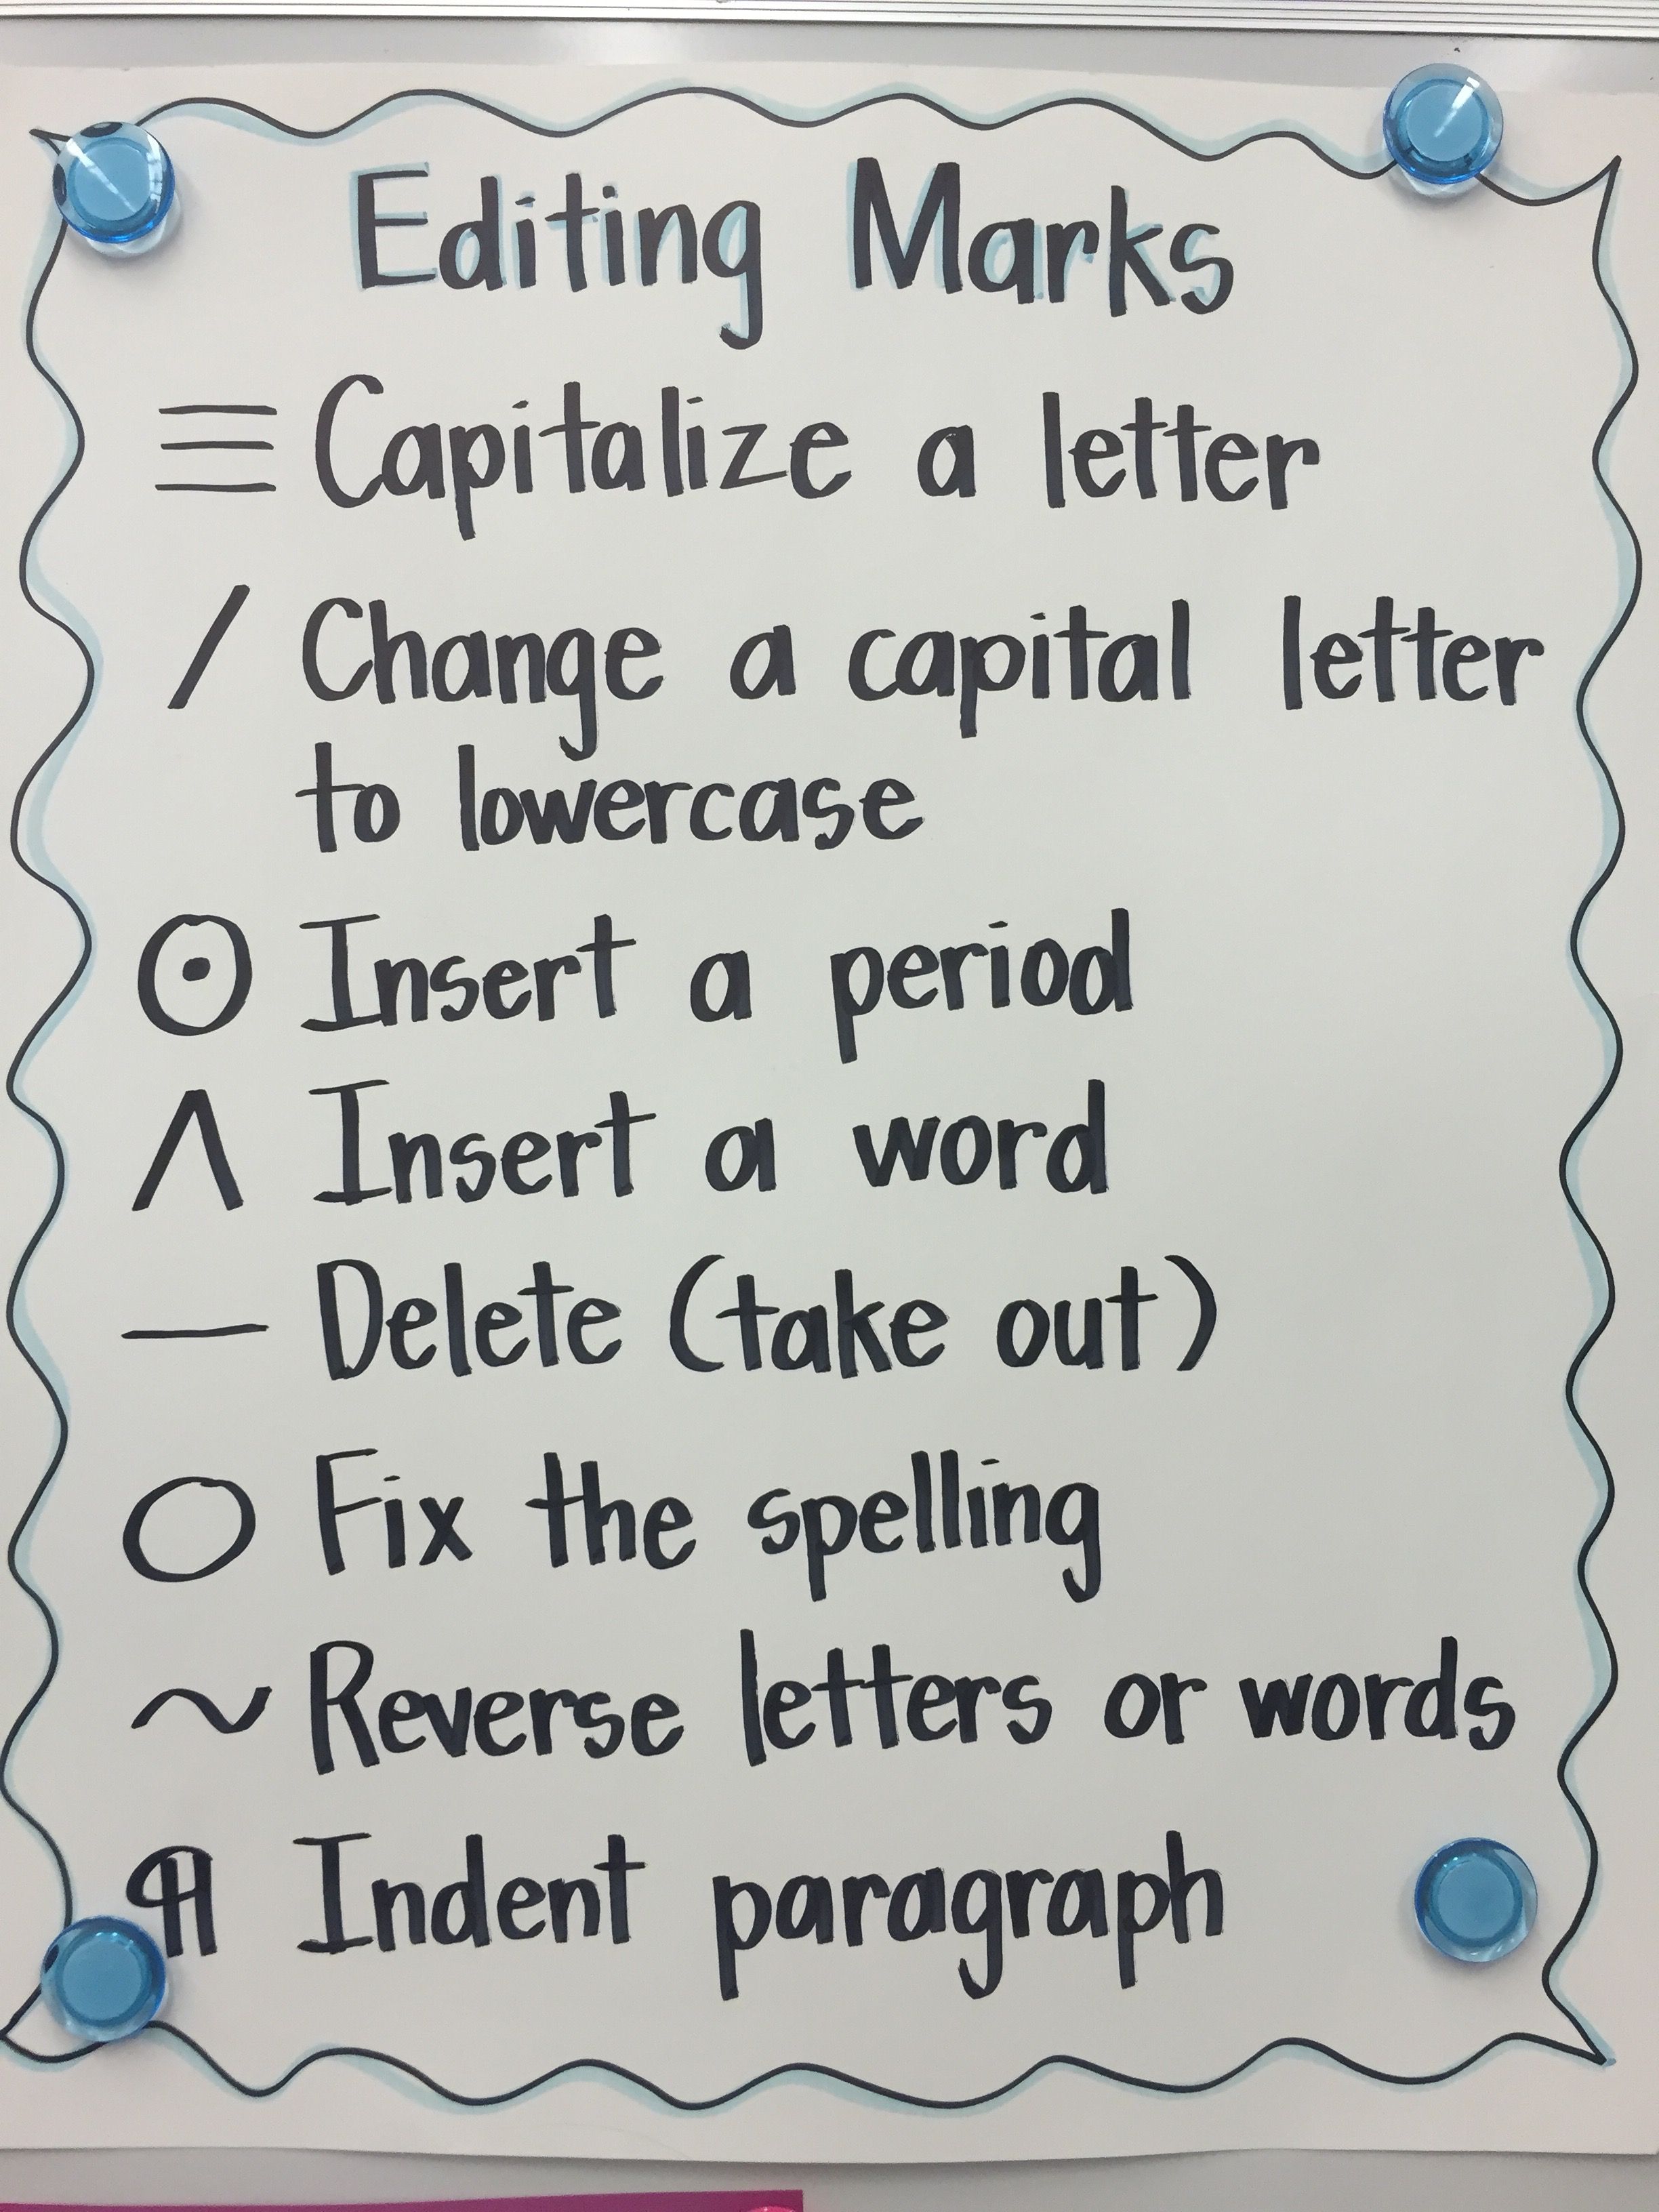 Editing Marks
≡ Capitalize a letter
/ Change a capital letter
to lowercase
⊙ Insert a period
∧ Insert a word
— Delete (take out)
○ Fix the spelling
~ Reverse letters or words
¶ Indent paragraph